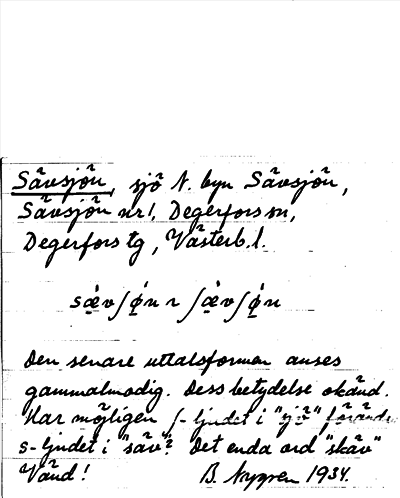 Sävsjön, sjö N. byn Sävsjön,
Sävsjön nr 1, Degerfors sn,
Degerfors tg, Västerb. l.
sǽ̣vʃǿ̣n ʃǽ̣vʃǿ̣n
Den senare uttalsformen anses
gammalmodig. Dess betydelse okänd.
Har möjligen ʃ-ljudet i "sjö"
s-ljudet i "säv"? Det enda ord "skäv"
Vänd! B. Nygren 1934.